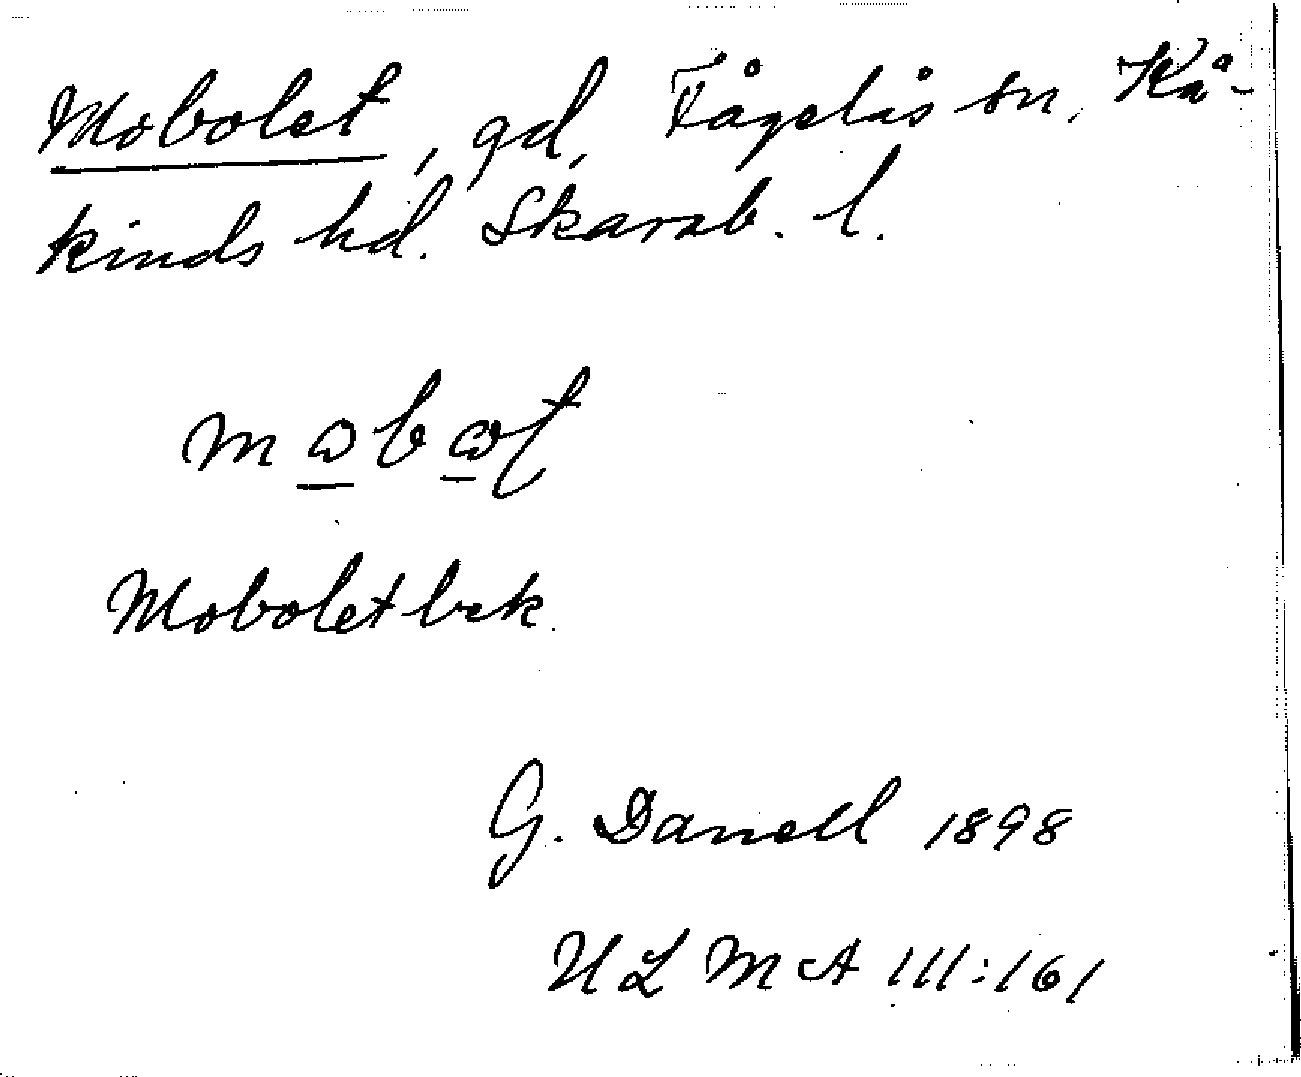 Mobolet, gd, Fågelås sn, Kå-
kinds hd. Skarab. l.
mωbωt
Mobolet bek.
G. Danell 1898
ULMA 111:161